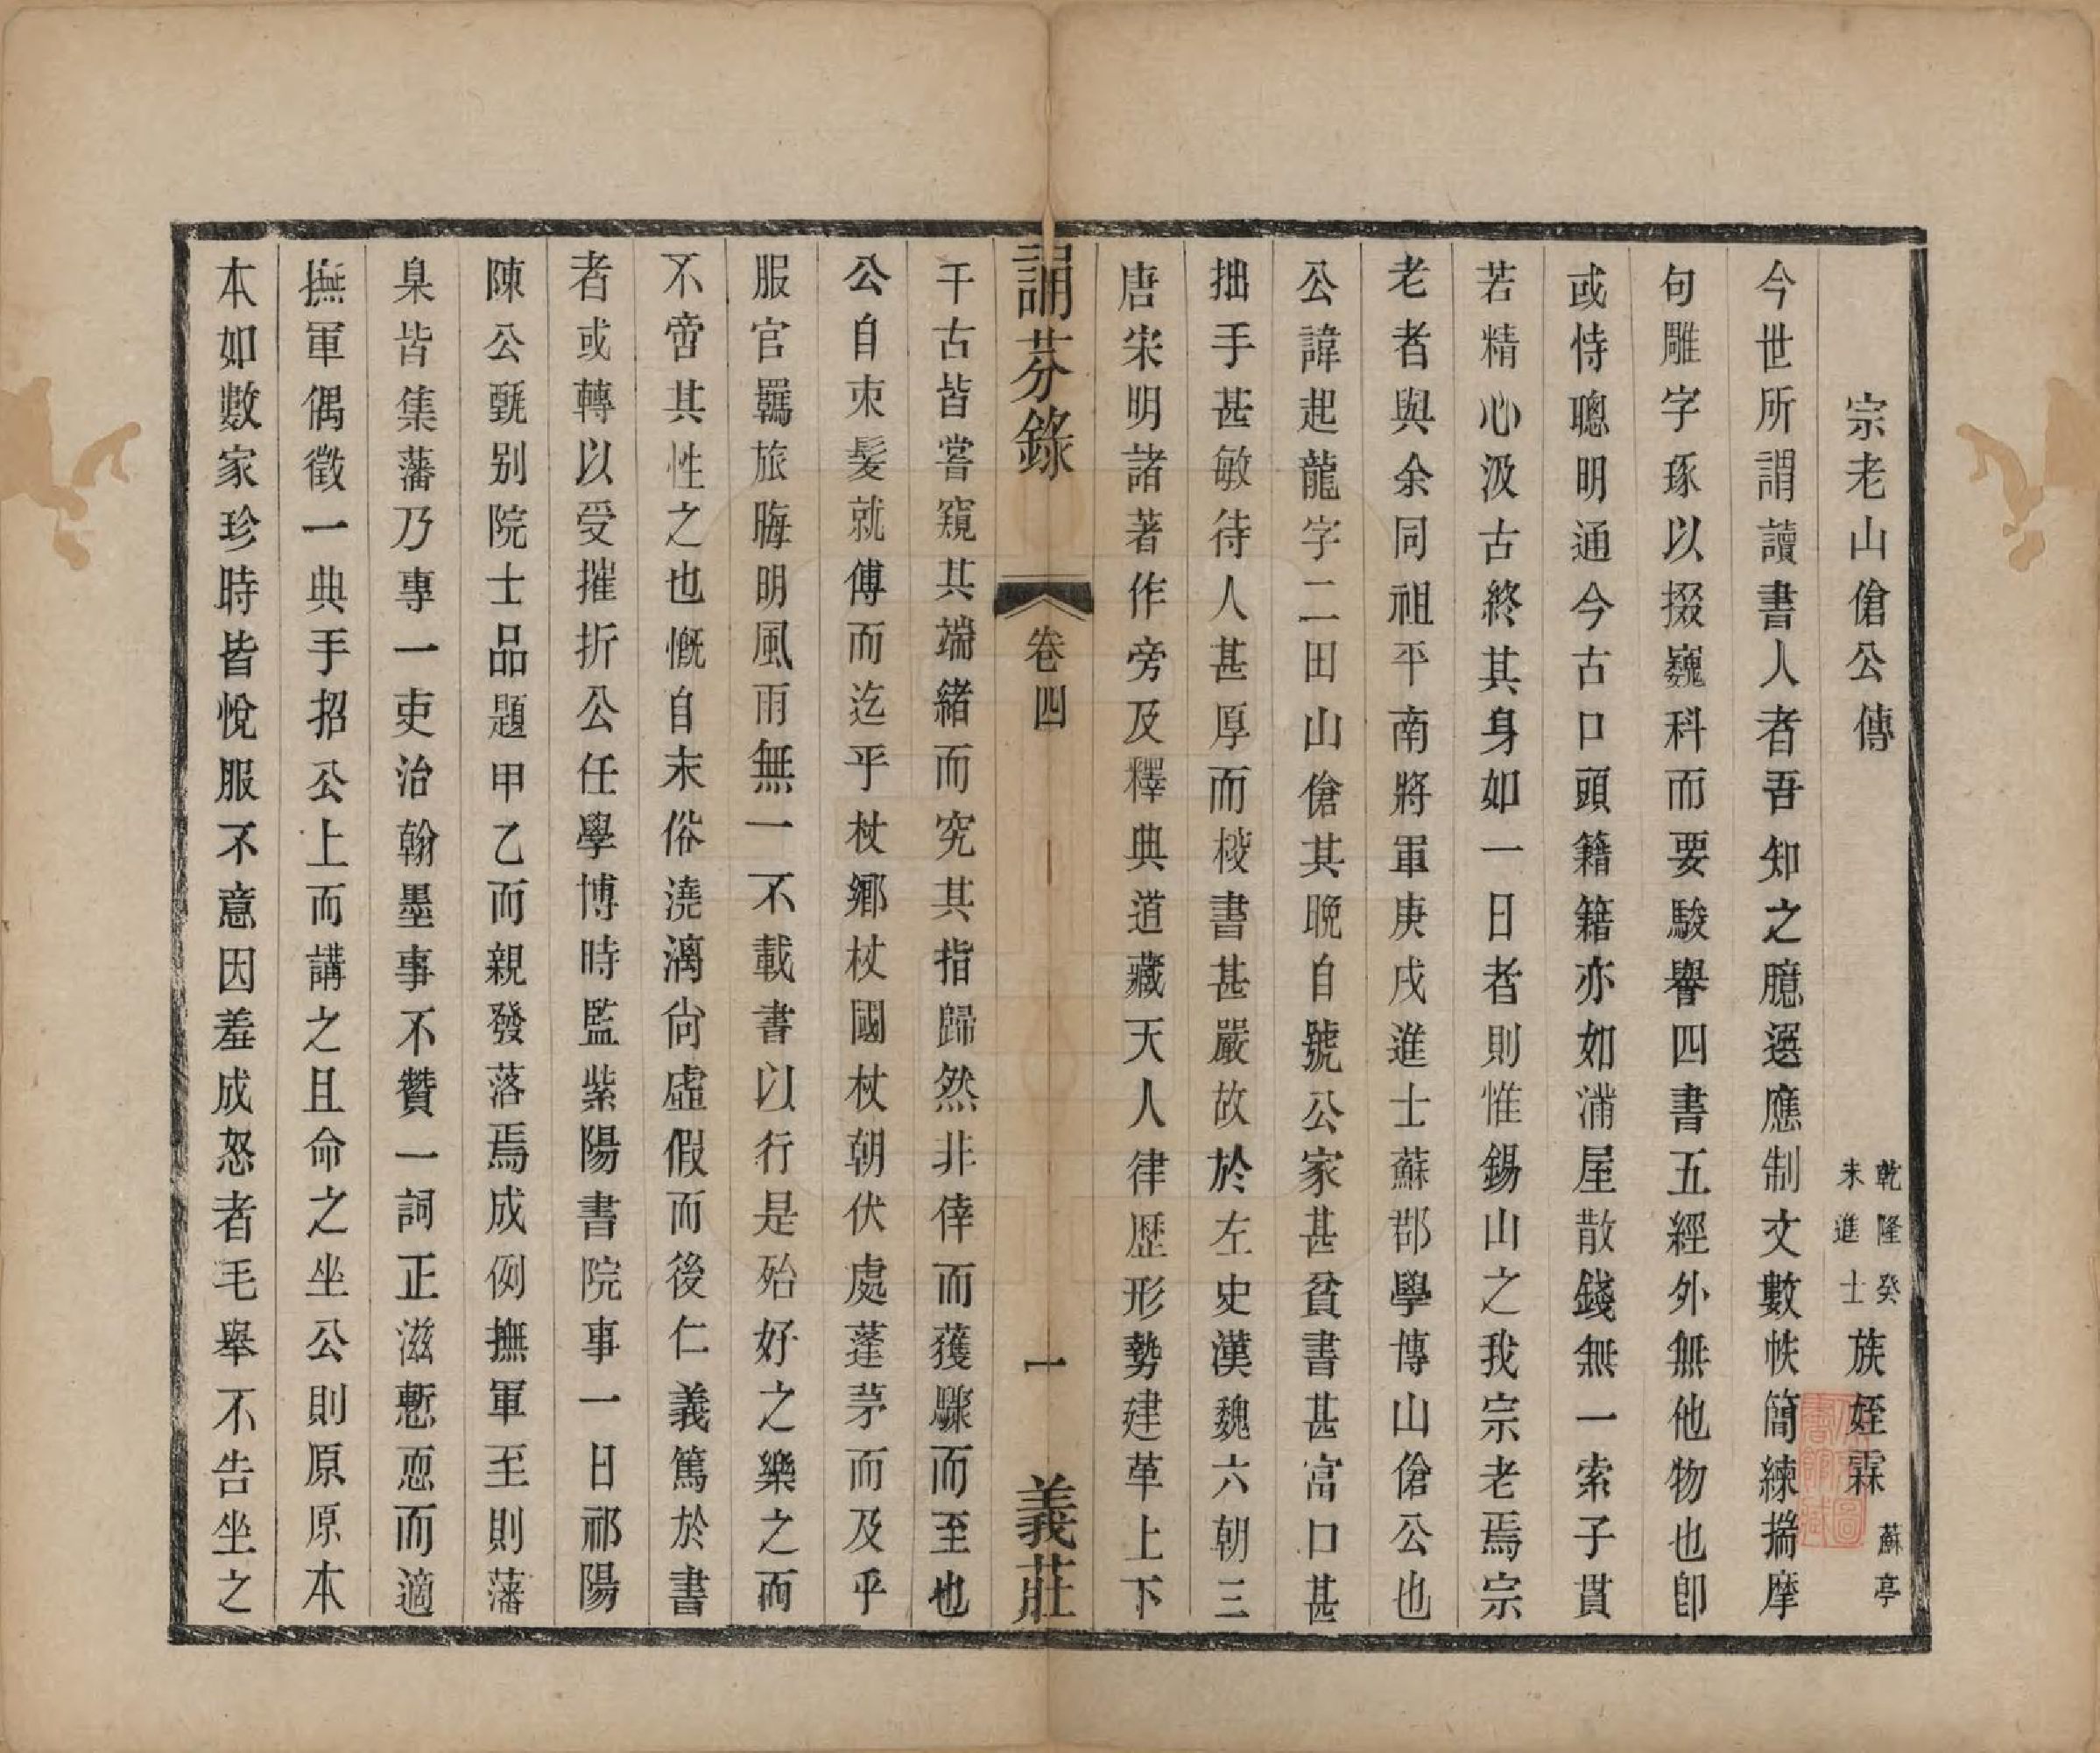 宗老山傖公傳　乾隆癸未進士族姪霖蘇亭
今世所謂讀書人者吾知之臆選應制文數帙簡練揣摩
句雕字琢以掇巍科而要駿譽四書五經外無他物也卽
或恃聰明通今古口頭籍籍亦如滿屋散錢無一索子貫
若精心汲古終其身如一日者則惟錫山之我宗老焉宗
老者與余同祖平南將軍庚戌進士蘇郡學博山傖公也
公諱起龍字二田山傖其晚自號公家甚貧書甚富口甚
拙手甚敏待人甚厚而校書甚嚴故於左史漢魏六朝三
唐宋明諸著作旁及釋典道藏天人律歷形勢建革上下
誦芬錄　卷四　一　義莊
千古皆嘗窺其端緒而究其指歸然非倖而獲驟而至也
公自束髮就傅而迄乎杖鄉杖國杖朝伏處蓬茅而及乎
服官羈旅晦明風雨無一不載書以行是殆好之樂之而
不啻其性之也慨自末俗澆漓尙虛假而後仁義篤於書
者或轉以受摧折公任學博時監紫陽書院事一日祁陽
陳公甄别院士品題甲乙而親發落焉成例撫軍至則藩
臬皆集藩乃專一吏治翰墨事不贊一詞正滋慙恧而適
撫軍偶徵一典手招公上而講之且命之坐公則原原本
本如數家珍時皆悅服不意因羞成怒者毛舉不告坐之